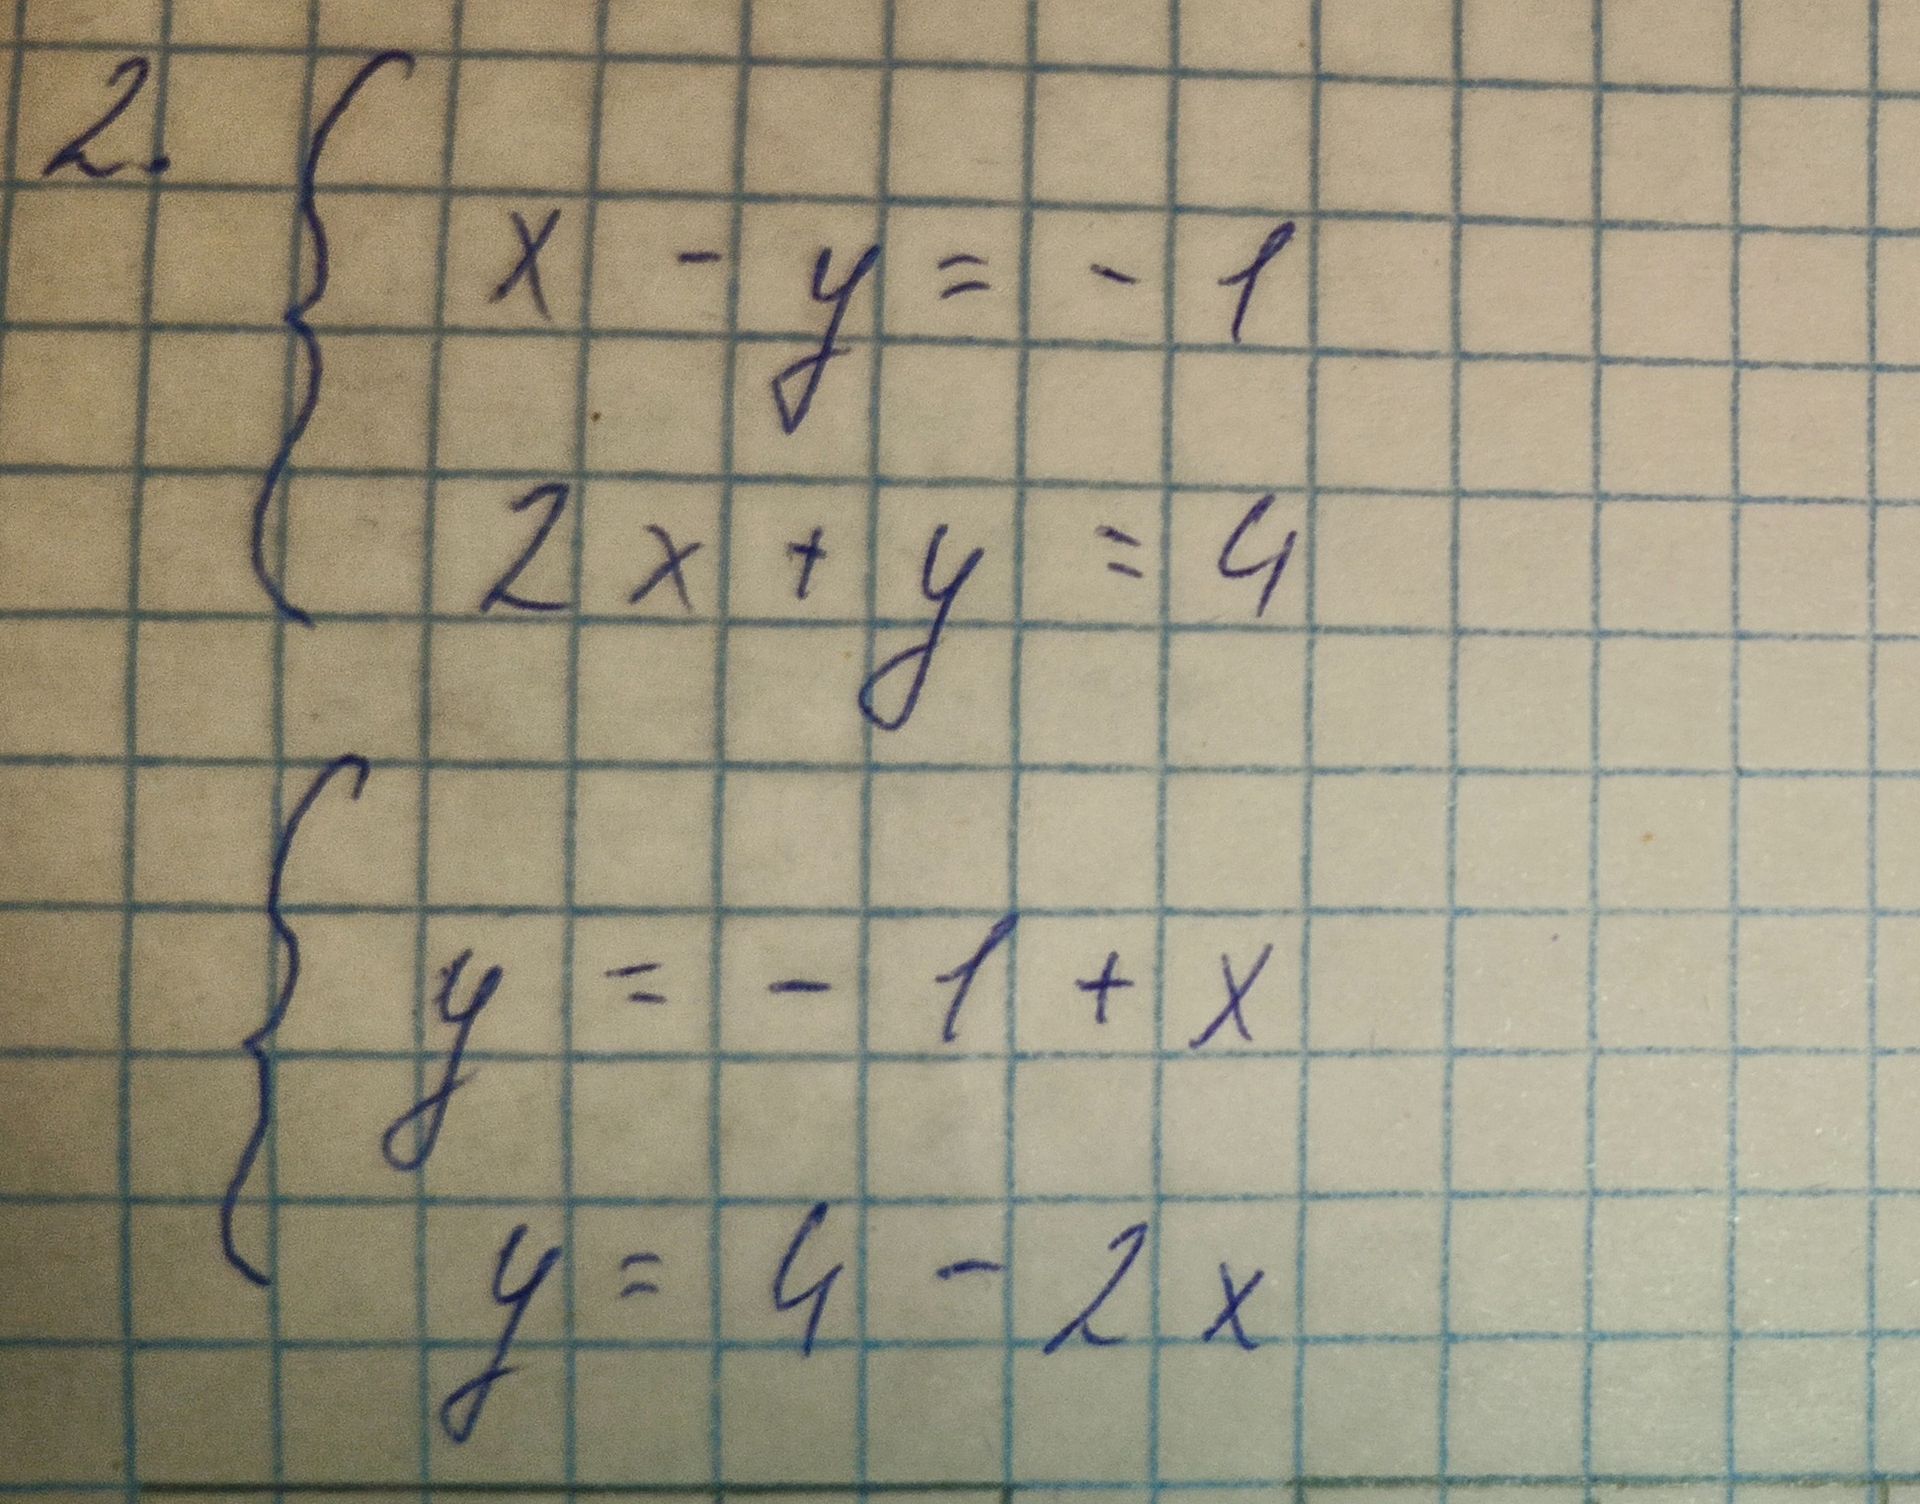 2.
x - y = - 1
2x + y = 4
y = - 1 + x
y = 4 - 2x